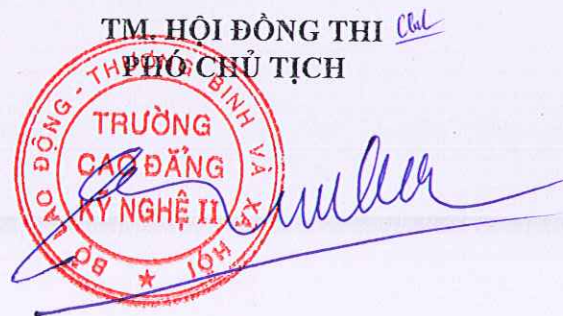 TM. HỘI ĐỒNG THI
PHÓ CHỦ TỊCH
BỘ LAO ĐỘNG - THƯƠNG BINH VÀ XÃ HỘI
TRƯỜNG
CAO ĐẲNG
KỸ NGHỆ II